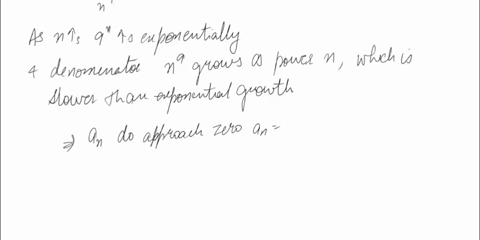 n
As n↑s 9ⁿ ↑s exponentially
& denominator n⁹ grows as power n, which is
slower than exponential growth
⇒ aₙ do approach zero aₙ =